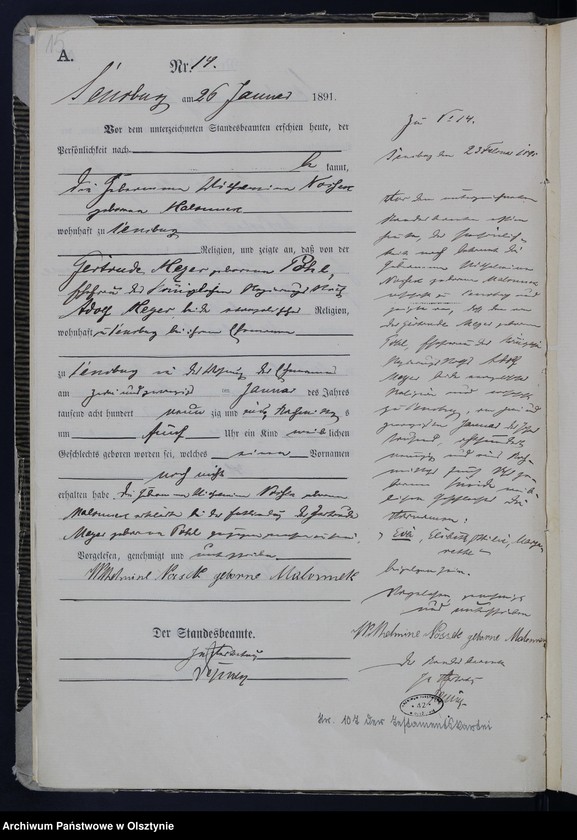 A.
Nr. 14.
Sensburg am 26 Januar 1891.
Vor dem unterzeichneten Standesbeamten erschien heute, der
Persönlichkeit nach
kannt,
die Hebamme Wilhelmine
geborene
wohnhaft zu Sensburg
Religion, und zeigte an, daß von der
Gertrude Meyer geborenen Pohl,
Ehefrau des Königlichen
Adolf Meyer beide evangelischer Religion,
wohnhaft zu Sensburg bei ihrem Ehemanne
zu Sensburg in der Wohnung des Ehemannes
am zwei und zwanzig ten Januar des Jahres
tausend acht hundert neun zig und eins Nachmittags
um fünf Uhr ein Kind weib lichen
Geschlechts geboren worden sei, welches einen Vornamen
noch nicht
erhalten habe. Die Hebamme Wilhelmine geborene
erklärte, bei der Entbindung der Gertrude
Meyer geborene Pohl zugegen gewesen zu sein.
Vorgelesen, genehmigt und unterschrieben
Wilhelmine geborne
Der Standesbeamte.
In Vertretung
Zu No 14.
Sensburg den 23 Februar 1891
Vor dem unterzeichneten
Standesbeamten erschien
heute, der Persönlich-
keit nach bekannt die
Hebamme Wilhelmine
geborene
wohnhaft zu Sensburg und
zeigte an, daß dem von
der Gertrude Meyer geborene
Pohl, Ehefrau des Königlichen
Adolf
Meyer beide evangelischer
Religion und wohnhaft
zu Sensburg, am zwei und
zwanzigsten Januar des Jahres
tausend achthundert
neunzig und eins Nach-
mittags fünf Uhr ge-
borenen Kinde weib-
lichen Geschlechts die
Vornamen:
Eva, Elisabeth,
beigelegt seien.
Vorgelesen, genehmigt
und unterschrieben
Wilhelmine geborne
Der Standesbeamte
In Vertretung
Nr. 107 der Testamentskartei
Archiwum Państwowe w Olsztynie